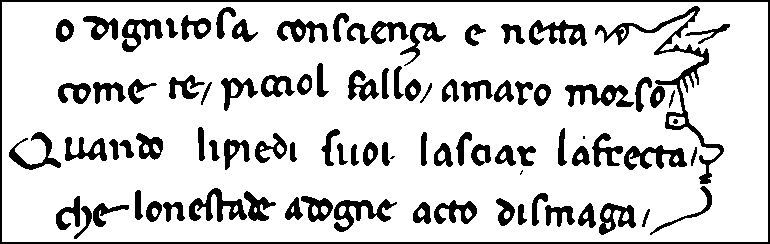 o dignitosa consciença e netta
come te/ picciol fallo/ amaro morso/
Quando lipiedi suoi lasciar lafrecta/
che lonestade adogne acto dismaga/